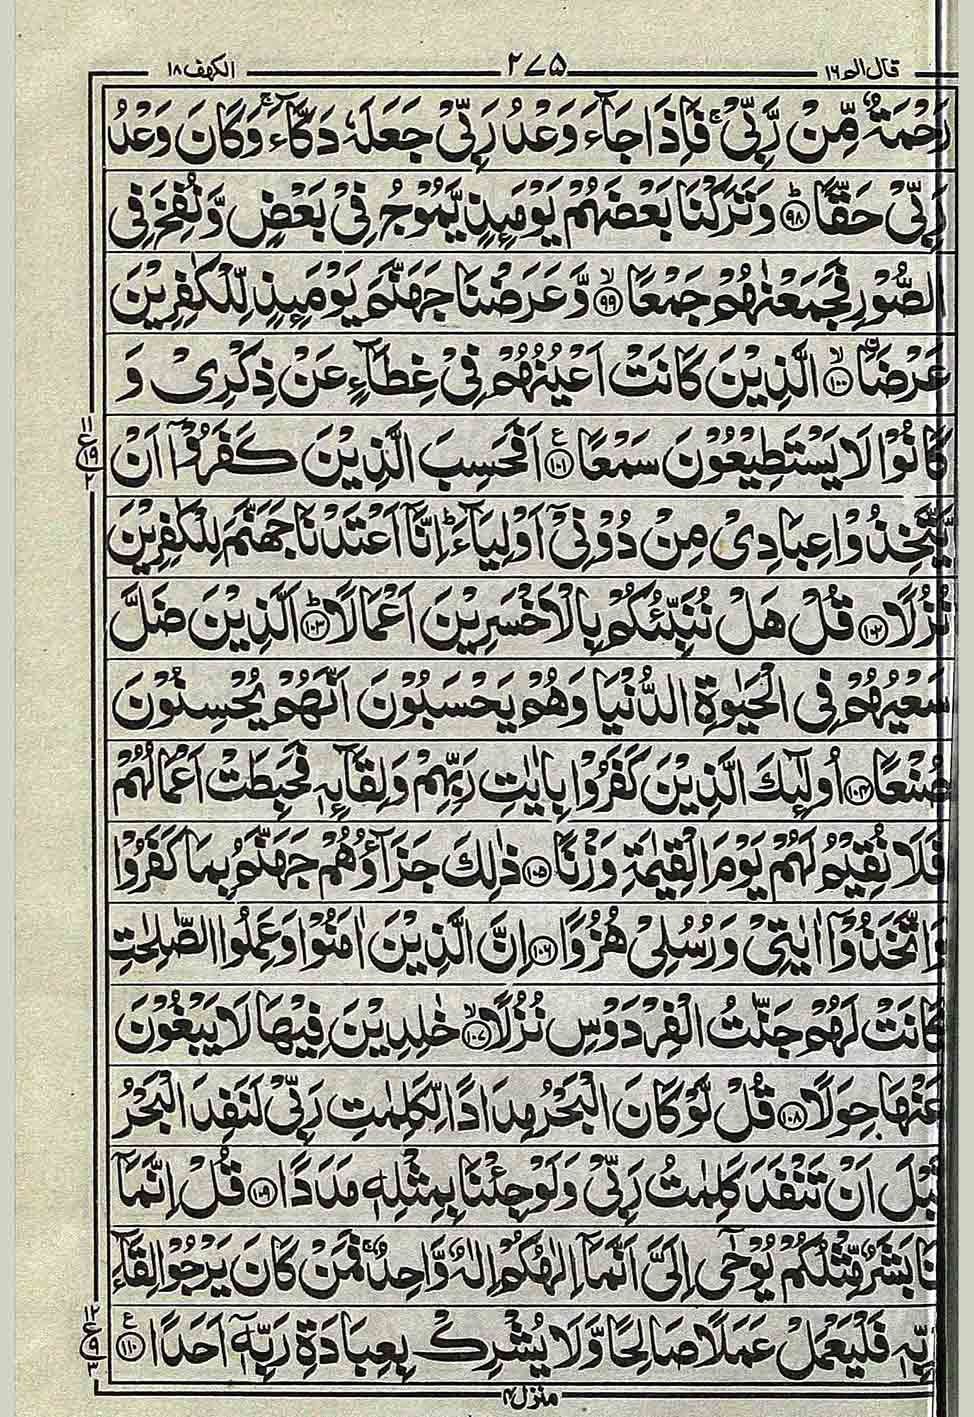 قال الم ١٦ ٢٧٥ الكهف ١٨
رَحْمَةٌ مِّنْ رَّبِّیْ ۚ فَاِذَا جَآءَ وَعْدُ رَبِّیْ جَعَلَهٗ دَكَّآءَ ۚ وَكَانَ وَعْدُ
رَبِّیْ حَقًّا ؕ﴿٩٨﴾ وَتَرَكْنَا بَعْضَهُمْ یَوْمَىِٕذٍ یَّمُوْجُ فِیْ بَعْضٍ وَّنُفِخَ فِی
الصُّوْرِ فَجَمَعْنٰهُمْ جَمْعًا ۙ﴿٩٩﴾ وَّعَرَضْنَا جَهَنَّمَ یَوْمَىِٕذٍ لِّلْكٰفِرِیْنَ
عَرْضَا ۙ﴿١٠٠﴾ الَّذِیْنَ كَانَتْ اَعْیُنُهُمْ فِیْ غِطَآءٍ عَنْ ذِكْرِیْ وَ
كَانُوْا لَا یَسْتَطِیْعُوْنَ سَمْعًا ﴿١٠١﴾ۧ اَفَحَسِبَ الَّذِیْنَ كَفَرُوْۤا اَنْ
١١
ع
١٩
٢
یَّتَّخِذُوْا عِبَادِیْ مِنْ دُوْنِیْۤ اَوْلِیَآءَ ؕ اِنَّاۤ اَعْتَدْنَا جَهَنَّمَ لِلْكٰفِرِیْنَ
نُزُلًا ﴿١٠٢﴾ قُلْ هَلْ نُنَبِّئُكُمْ بِالْاَخْسَرِیْنَ اَعْمَالًا ؕ﴿١٠٣﴾ اَلَّذِیْنَ ضَلَّ
سَعْیُهُمْ فِی الْحَیٰوةِ الدُّنْیَا وَهُمْ یَحْسَبُوْنَ اَنَّهُمْ یُحْسِنُوْنَ
صُنْعًا ﴿١٠٤﴾ اُولٰٓىِٕكَ الَّذِیْنَ كَفَرُوْا بِاٰیٰتِ رَبِّهِمْ وَلِقَآىِٕهٖ فَحَبِطَتْ اَعْمَالُهُمْ
فَلَا نُقِیْمُ لَهُمْ یَوْمَ الْقِیٰمَةِ وَزْنًا ﴿١٠٥﴾ ذٰلِكَ جَزَآؤُهُمْ جَهَنَّمُ بِمَا كَفَرُوْا
وَاتَّخَذُوْۤا اٰیٰتِیْ وَرُسُلِیْ هُزُوًا ﴿١٠٦﴾ اِنَّ الَّذِیْنَ اٰمَنُوْا وَعَمِلُوا الصّٰلِحٰتِ
كَانَتْ لَهُمْ جَنّٰتُ الْفِرْدَوْسِ نُزُلًا ۙ﴿١٠٧﴾ خٰلِدِیْنَ فِیْهَا لَا یَبْغُوْنَ
عَنْهَا حِوَلًا ﴿١٠٨﴾ قُلْ لَّوْ كَانَ الْبَحْرُ مِدَادًا لِّكَلِمٰتِ رَبِّیْ لَنَفِدَ الْبَحْرُ
قَبْلَ اَنْ تَنْفَدَ كَلِمٰتُ رَبِّیْ وَلَوْ جِئْنَا بِمِثْلِهٖ مَدَدًا ﴿١٠٩﴾ قُلْ اِنَّمَاۤ
نَا بَشَرٌ مِّثْلُكُمْ یُوْحٰۤی اِلَیَّ اَنَّمَاۤ اِلٰهُكُمْ اِلٰهٌ وَّاحِدٌ ۚ فَمَنْ كَانَ یَرْجُوْا لِقَآءَ
رَبِّهٖ فَلْیَعْمَلْ عَمَلًا صَالِحًا وَّلَا یُشْرِكْ بِعِبَادَةِ رَبِّهٖۤ اَحَدًا ﴿١١٠﴾ۧ
١٢
ع
٩
٣
منزل ٤